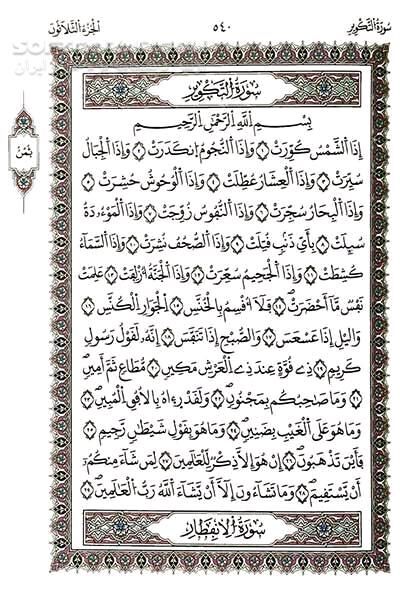 سورة التكوير
٥٤٠
الجزء الثلاثون
سُورَةُ التَّكْوِيرِ
بِسْمِ اللَّهِ الرَّحْمَٰنِ الرَّحِيمِ
إِذَا الشَّمْسُ كُوِّرَتْ ١ وَإِذَا النُّجُومُ انكَدَرَتْ ٢ وَإِذَا الْجِبَالُ
سُيِّرَتْ ٣ وَإِذَا الْعِشَارُ عُطِّلَتْ ٤ وَإِذَا الْوُحُوشُ حُشِرَتْ ٥
وَإِذَا الْبِحَارُ سُجِّرَتْ ٦ وَإِذَا النُّفُوسُ زُوِّجَتْ ٧ وَإِذَا الْمَوْءُۥدَةُ
سُئِلَتْ ٨ بِأَيِّ ذَنۢبٍ قُتِلَتْ ٩ وَإِذَا الصُّحُفُ نُشِرَتْ ١٠ وَإِذَا السَّمَآءُ
كُشِطَتْ ١١ وَإِذَا الْجَحِيمُ سُعِّرَتْ ١٢ وَإِذَا الْجَنَّةُ أُزْلِفَتْ ١٣ عَلِمَتْ
نَفْسٌ مَّآ أَحْضَرَتْ ١٤ فَلَآ أُقْسِمُ بِالْخُنَّسِ ١٥ الْجَوَارِ الْكُنَّسِ ١٦
وَالَّيْلِ إِذَا عَسْعَسَ ١٧ وَالصُّبْحِ إِذَا تَنَفَّسَ ١٨ إِنَّهُۥ لَقَوْلُ رَسُولٍ
كَرِيمٍ ١٩ ذِي قُوَّةٍ عِندَ ذِي الْعَرْشِ مَكِينٍ ٢٠ مُّطَاعٍ ثَمَّ أَمِينٍ
٢١ وَمَا صَاحِبُكُم بِمَجْنُونٍ ٢٢ وَلَقَدْ رَءَاهُ بِالْأُفُقِ الْمُبِينِ ٢٣
وَمَا هُوَ عَلَى الْغَيْبِ بِضَنِينٍ ٢٤ وَمَا هُوَ بِقَوْلِ شَيْطَٰنٍ رَّجِيمٍ ٢٥
فَأَيْنَ تَذْهَبُونَ ٢٦ إِنْ هُوَ إِلَّا ذِكْرٌ لِّلْعَٰلَمِينَ ٢٧ لِمَن شَآءَ مِنكُمْ
أَن يَسْتَقِيمَ ٢٨ وَمَا تَشَآءُونَ إِلَّآ أَن يَشَآءَ اللَّهُ رَبُّ الْعَٰلَمِينَ ٢٩
سُورَةُ الِانفِطَارِ
ثمن